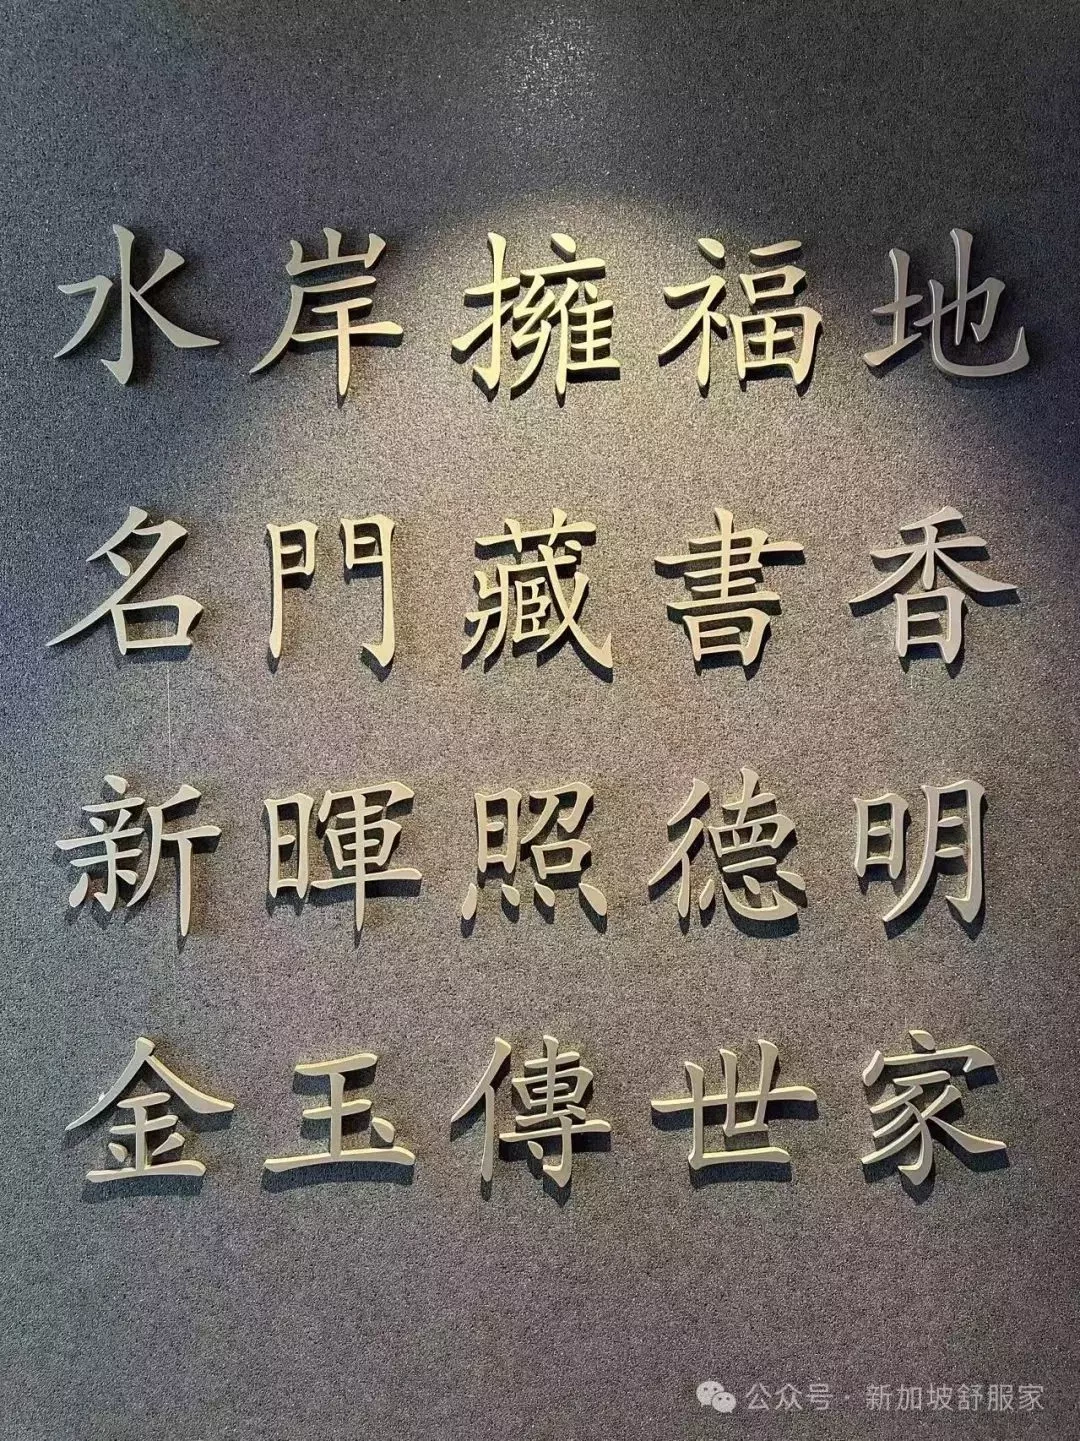 水岸擁福地
名門藏書香
新暉照德明
金玉傳世家
公众号·新加坡舒服家